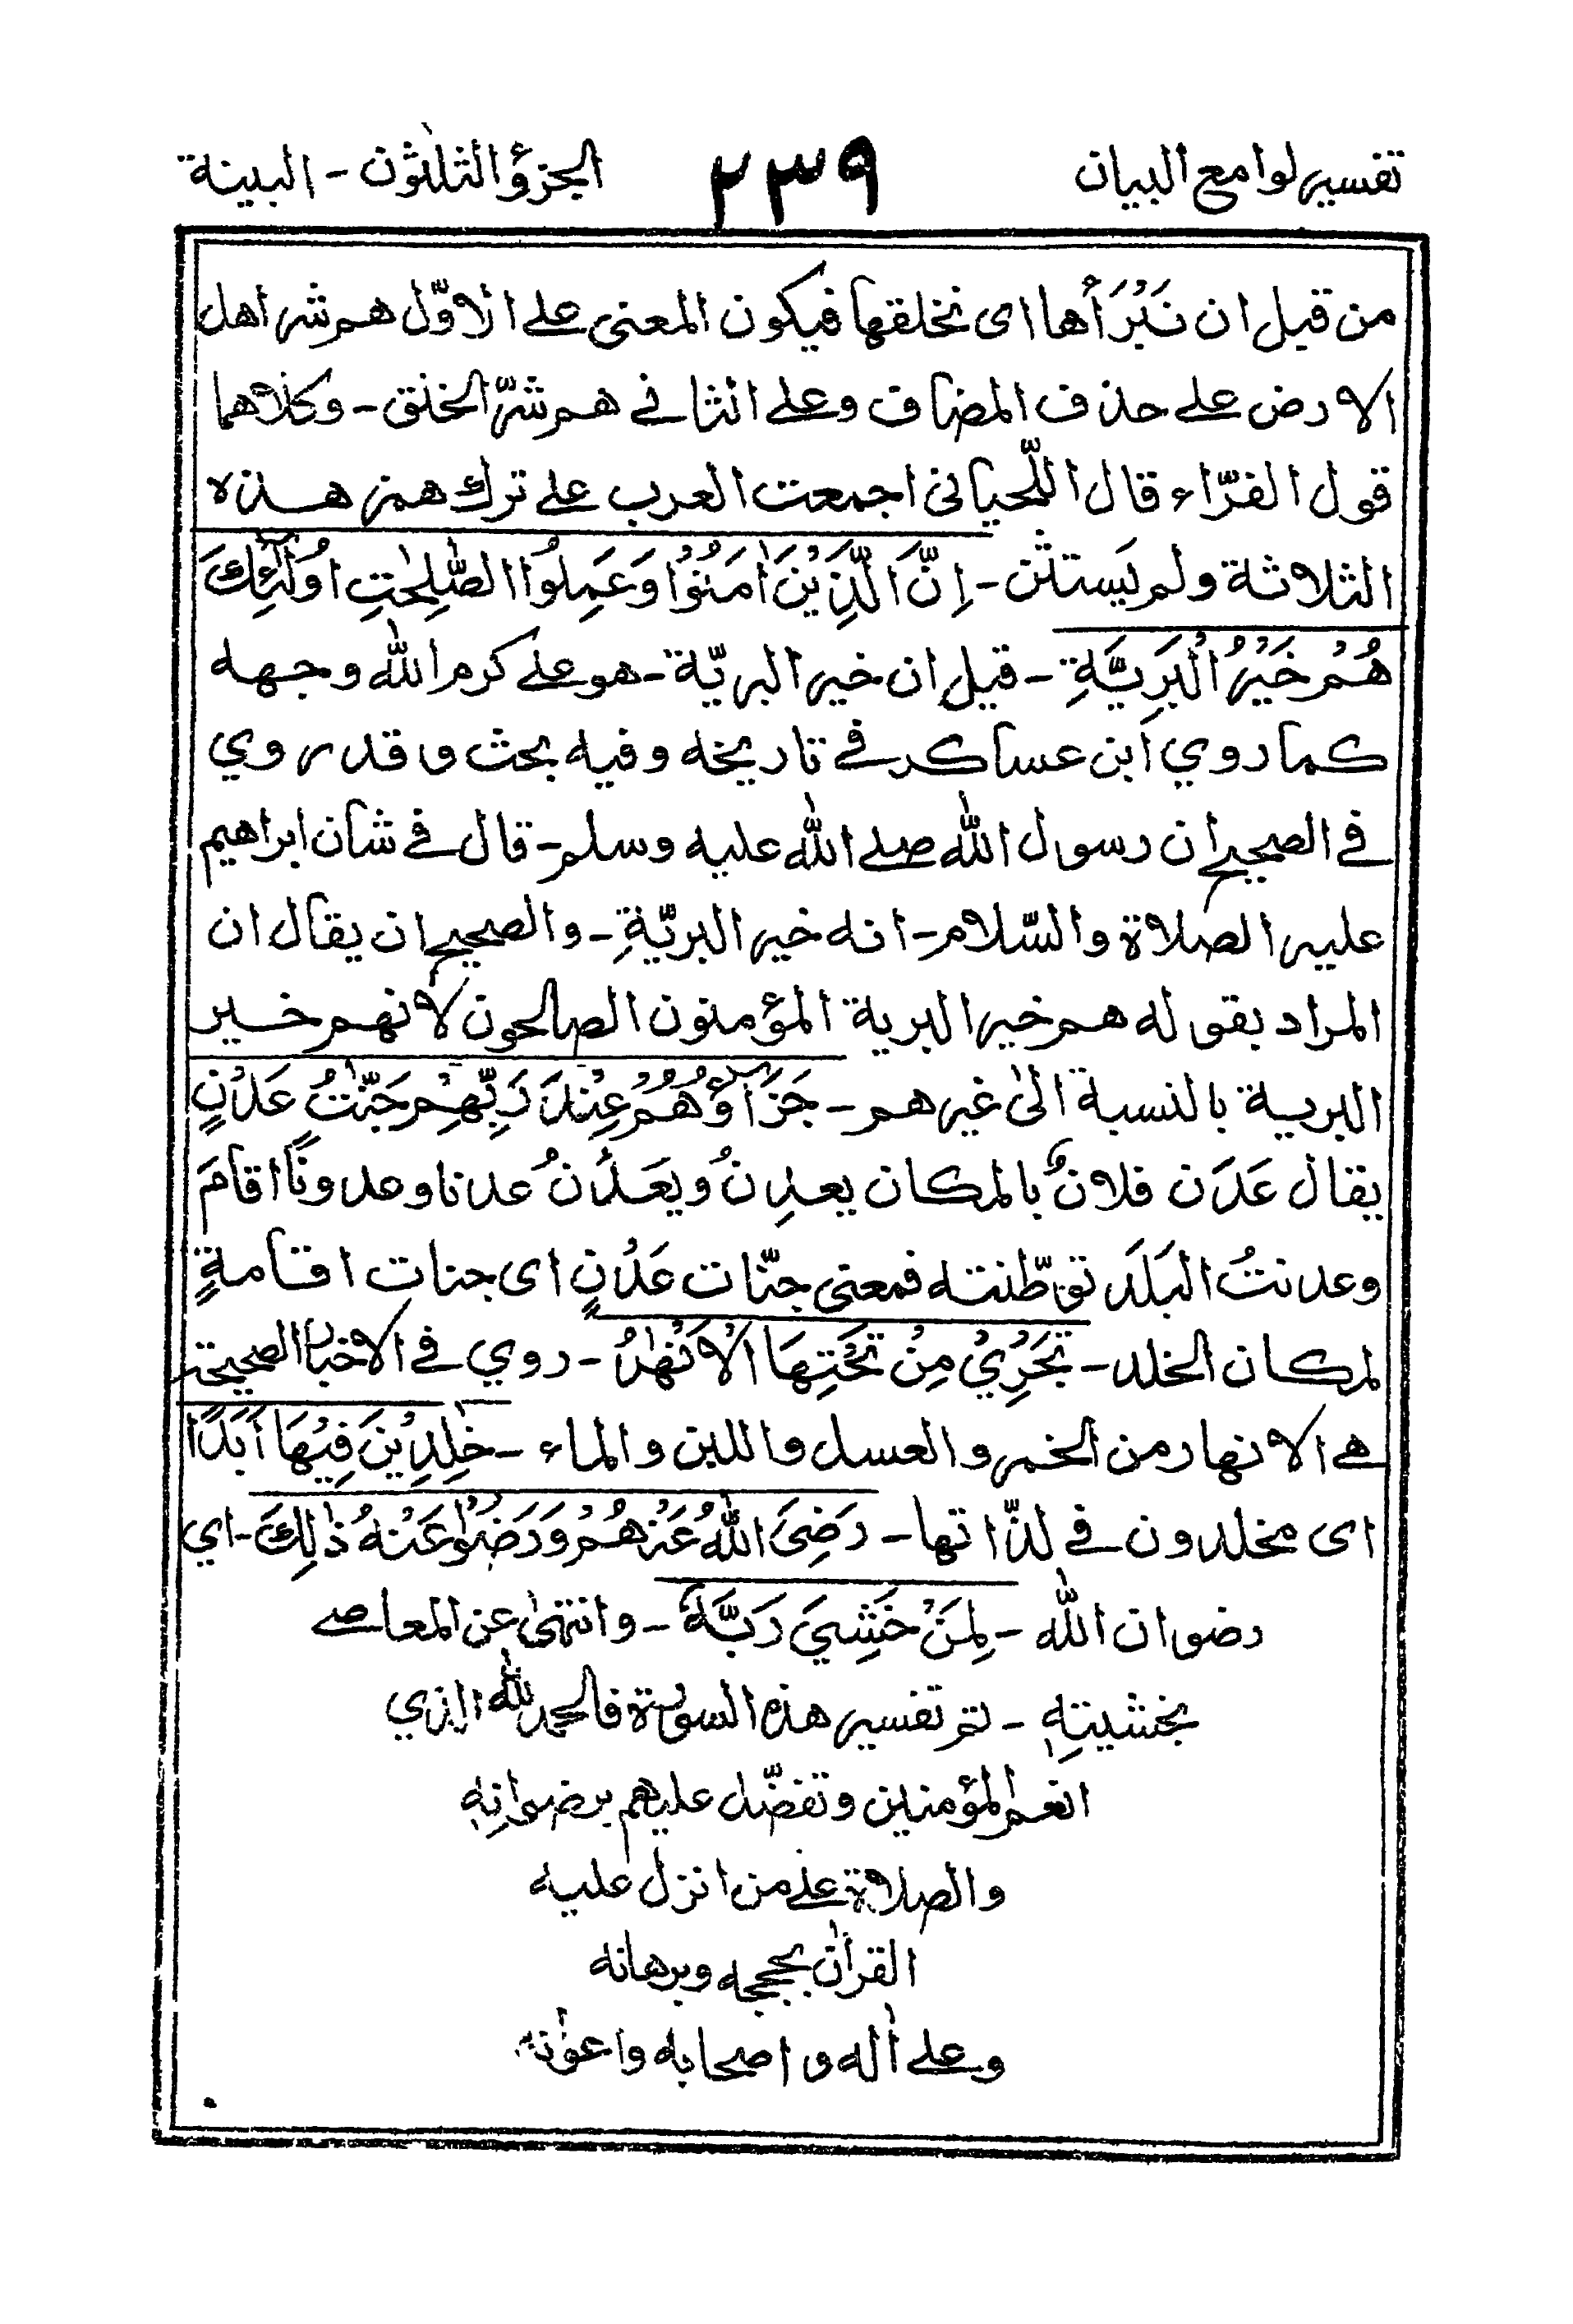 تفسير لوامع البيان ٢٣٩ الجزؤ الثلٰثون - البينة
من قبل ان نَبْرَأَها اى نخلقها فيكون المعنى على الاوّل هم شر اهل
الارض على حذف المضاف وعلى الثانى هم شرّ الخلق - وكلاهما
قول الفرّاء قال اللّحيانى اجمعت العرب على ترك همز هذه
الثلاثة ولم يَستثن - اِنَّ الَّذِيْنَ اٰمَنُوْا وَعَمِلُوا الصّٰلِحٰتِ اُولٰٓئِكَ
هُمْ خَيْرُ الْبَرِيَّةِ - قيل ان خير البريّة - هو على كرم الله وجهه
كما روي ابن عساكر فى تاريخه وفيه بحث وقد روي
فى الصحيح ان رسول الله صلى الله عليه وسلم - قال فى شان ابراهيم
عليه الصلاة والسّلام - انه خير البريّةِ - والصحيح ان يقال ان
المراد بقوله هم خير البرية المؤمنون الصالحون لانهم خير
البرية بالنسبة الىٰ غيرهم - جَزَآؤُهُمْ عِنْدَ رَبِّهِمْ جَنّٰتُ عَدْنٍ
يقال عَدَن فلانٌ بالمكان يعدِنُ ويَعدُنُ عدنا وعدونًا اقامَ
وعدنتُ البَلَدَ توطّنته فمعنى جنّات عَدْنٍ اى جنات اقامةٍ
لمكان الخلد - تَجْرِيْ مِنْ تَحْتِهَا الْاَنْهٰرُ - روي فى الاخبار الصحيحة
هى الانهار من الخمر والعسل واللبن والماء - خٰلِدِيْنَ فِيْهَا اَبَدًا
اى مخلدون فى لذّاتها - رَضِىَ اللهُ عَنْهُمْ وَرَضُوْا عَنْهُ ذٰلِكَ - اي
رضوان الله - لِمَنْ خَشِيَ رَبَّهٗ - وانتهىٰ عن المعاصى
بخشيتهٖ - تم تفسير هذه السورة فالحمد لله الذي
انعم المؤمنين وتفضّل عليهم برضوانهٖ
والصلاة على من انزل عليه
القراٰن بحججه وبرهانه
وعلى اٰله واصحابه واعوٰنه